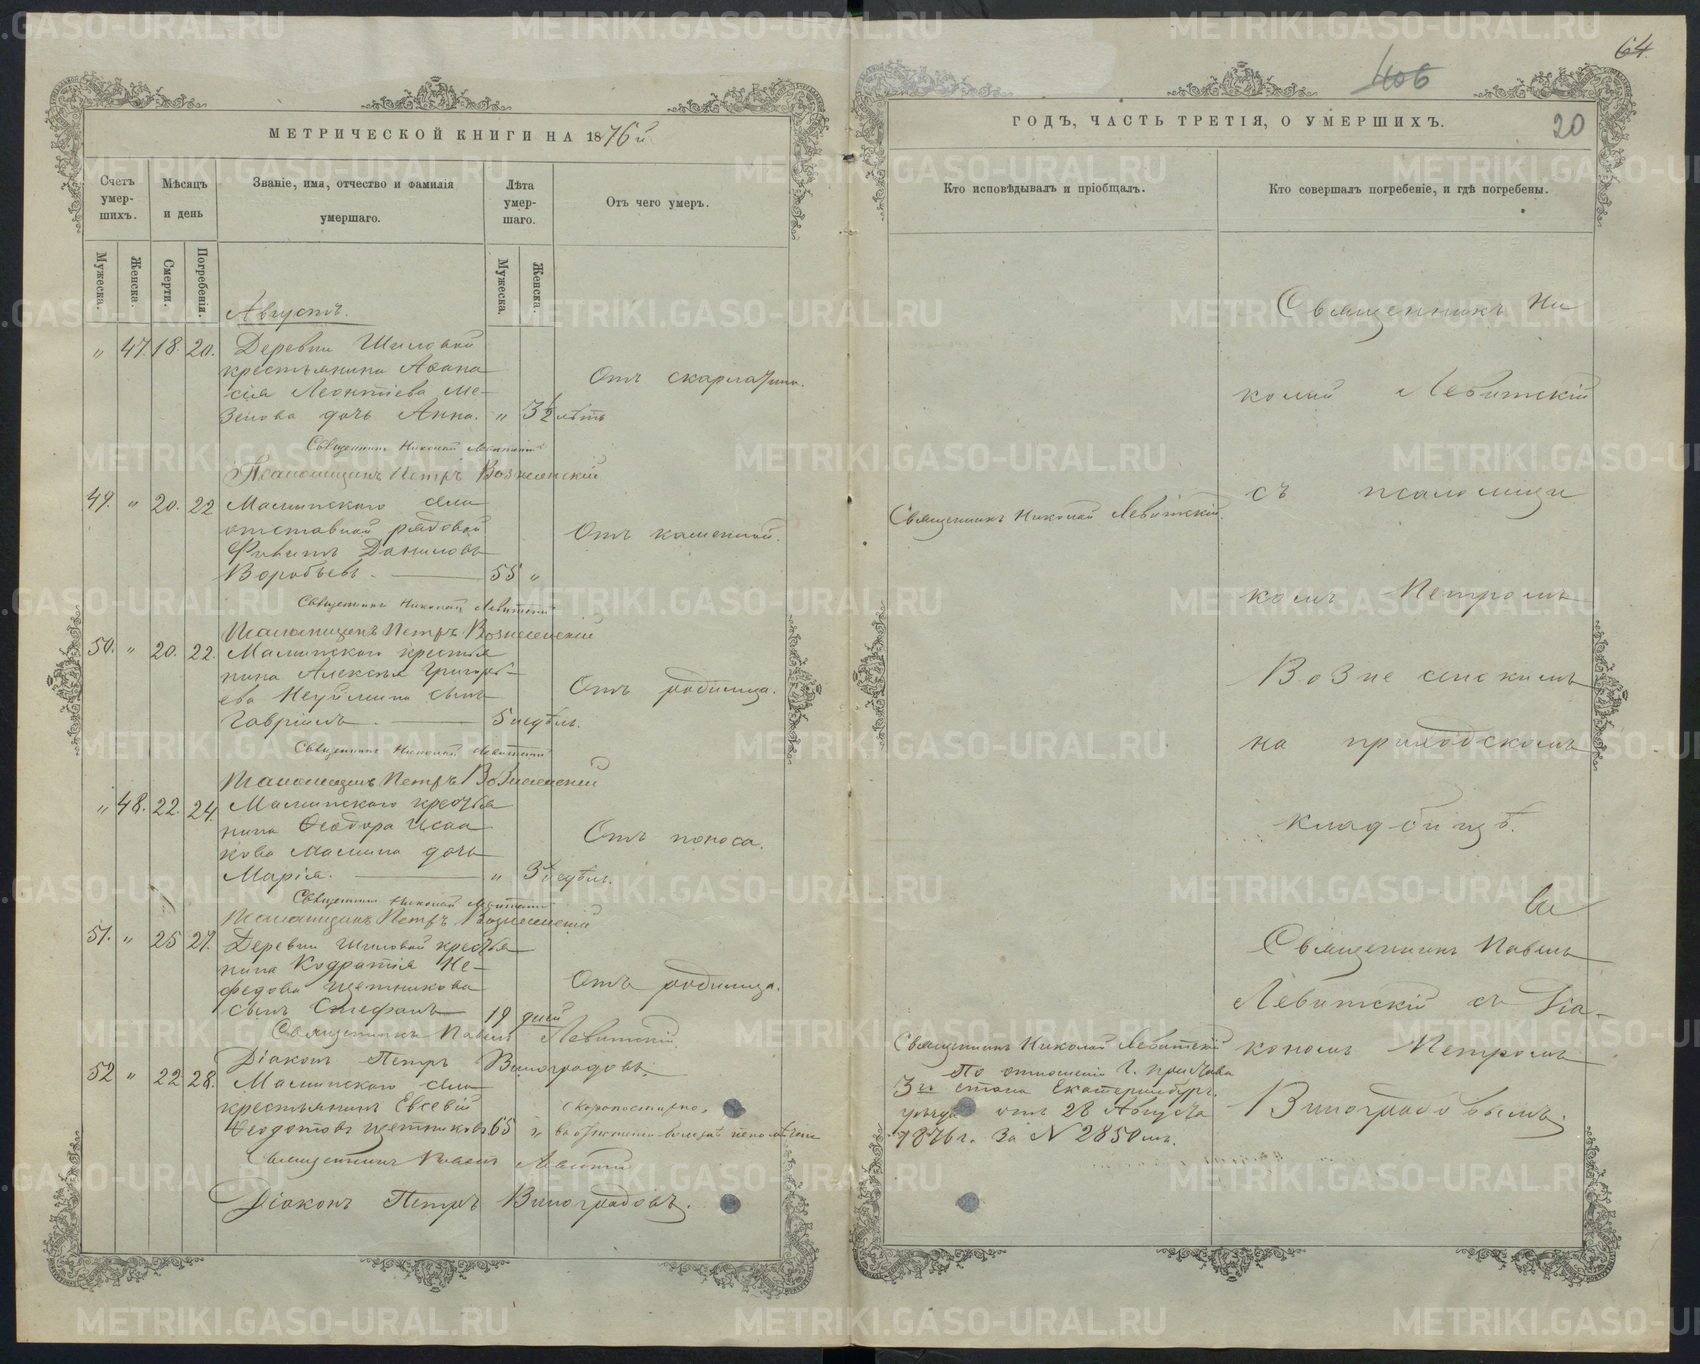 МЕТРИЧЕСКОЙ КНИГИ НА 1876й
Счетъ умер-шихъ.
Мѣсяцъ и день
Званіе, имя, отчество и фамилія умершаго.
Лѣта умер-шаго.
Отъ чего умеръ.
Мужеска.
Женска.
Смерти.
Погребенія.
Мужеска.
Женска.
Августъ.
" 47. 18. 20. Деревни Шиловой
крестьянина Аѳана
сія Леонтіева Ме-
зенова дочь Анна. " 3 1/2 лѣтъ
Отъ скарлатины.
Священникъ Николай Левитскій
Псаломщикъ Петръ Вознесенскій
49. " 20. 22 Маминскаго села
отставной рядовой
Филипъ Даниловъ
Воробьевъ. 55 "
Отъ каменной.
Священникъ Николай Левитскій
Псаломщикъ Петръ Вознесенскій
50. " 20. 22. Маминскаго крестья
нина Алексѣя Григорь-
ева Неуймина сынъ
Гавріилъ. 5 недѣль.
Отъ родимца.
Священникъ Николай Левитскій
Псаломщикъ Петръ Вознесенскій
" 48. 22. 24. Маминскаго крестья
нина Ѳеодора Исаа
кова Мамина дочь
Марія. " 3 недѣль.
Отъ поноса.
Священникъ Николай Левитскій
Псаломщикъ Петръ Вознесенскій
51. " 25 27. Деревни Шиловой крестья
нина Кодратія Не-
федова Щетникова
сынъ Стефанъ 19 дней
Отъ родимца.
Священникъ Павелъ Левитскій.
Діаконъ Петръ Виноградовъ.
52 " 22 28. Маминскаго села
крестьянинъ Евсевій
Ѳедотовъ Щетниковъ 65 "
скоропостижно,
Священникъ Павелъ Левитскій
Діаконъ Петръ Виноградовъ.
64.
406
20
ГОДЪ, ЧАСТЬ ТРЕТІЯ, О УМЕРШИХЪ.
Кто исповѣдывалъ и пріобщалъ.
Кто совершалъ погребеніе, и гдѣ погребены.
Священникъ Николай Левитскій.
Священникъ Николай Левитскій
По отношенію Г. пристава
3го стана Екатеринбур.
уѣзда отъ 28 Августа
1876 г. За № 2850мъ.
Священникъ Ни
колай Левитскій
съ псаломщи
комъ Петромъ
Вознесенскимъ
на приходскомъ
кладбищѣ.
Священникъ Павелъ
Левитскій съ Діа-
кономъ Петромъ
Виноградовымъ.
METRIKI.GASO-URAL.RU